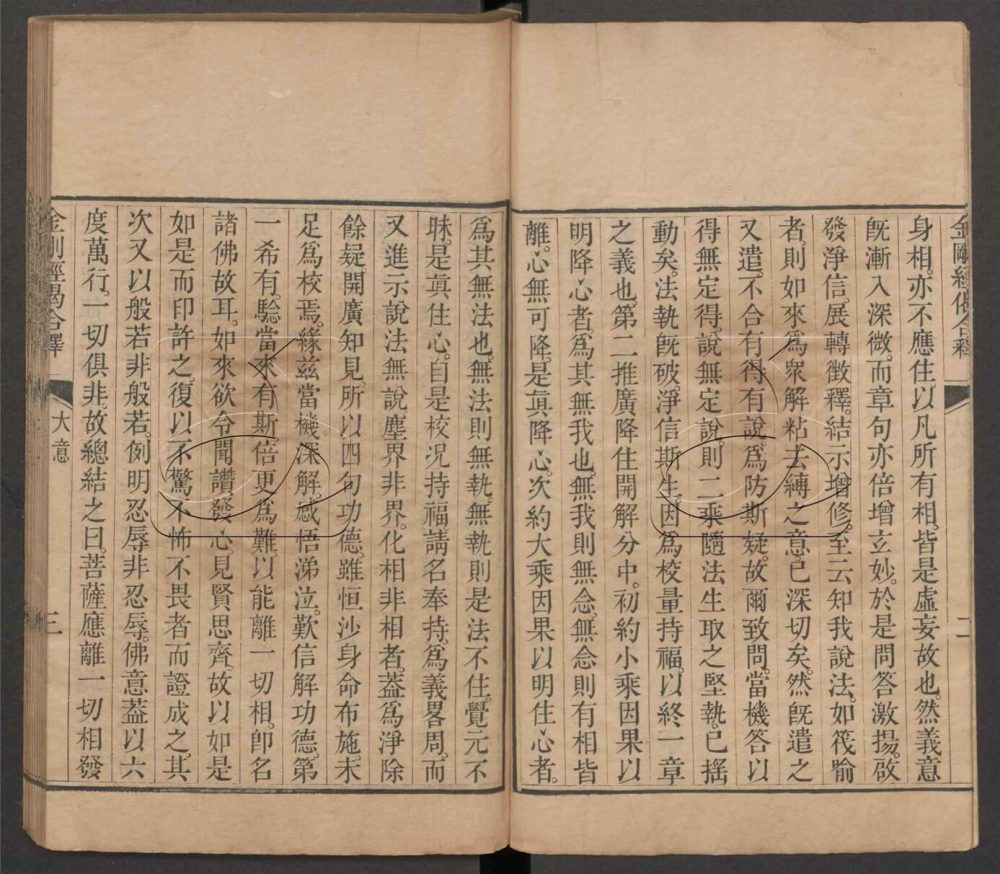 金剛經偈合釋
二
身相。亦不應住。以凡所有相。皆是虛妄故也。然義意
旣漸入深微。而章句亦倍增玄妙。於是問答激揚。啟
發淨信。展轉徵釋。結示增修。至云知我說法。如筏喻
者。則如來爲衆解粘去縛之意。已深切矣。然旣遣之
又遣。不合有得有說。爲防斯疑。故爾致問。當機答以
得無定得。說無定說。則二乘隨法生取之堅執。已搖
動矣。法執旣破。淨信斯生。因爲校量持福。以終一章
之義也。第二推廣降住開解分中。初約小乘因果以
明降心者。爲其無我也。無我則無念。無念則有相皆
離。心無可降。是眞降心。次約大乘因果以明住心者。
爲其無法也。無法則無執。無執則是法不住。覺元不
昧。是眞住心。自是校况持福。請名奉持。爲義畧周。而
又進示說法無說。塵界非界。化相非相者。葢爲淨除
餘疑。開廣知見。所以四句功德。雖恒沙身命布施。未
足爲校焉。緣兹當機深解。感悟涕泣。歎信解功德。第
一希有。驗當來有斯倍更爲難。以能離一切相。卽名
諸佛故耳。如來欲令聞讚發心。見賢思齊。故以如是
如是而印許之。復以不驚不怖不畏者而證成之。其
次又以般若非般若。例明忍辱非忍辱。佛意葢以六
度萬行。一切俱非。故總結之曰。菩薩應離一切相發
金剛經偈合釋
大意
三